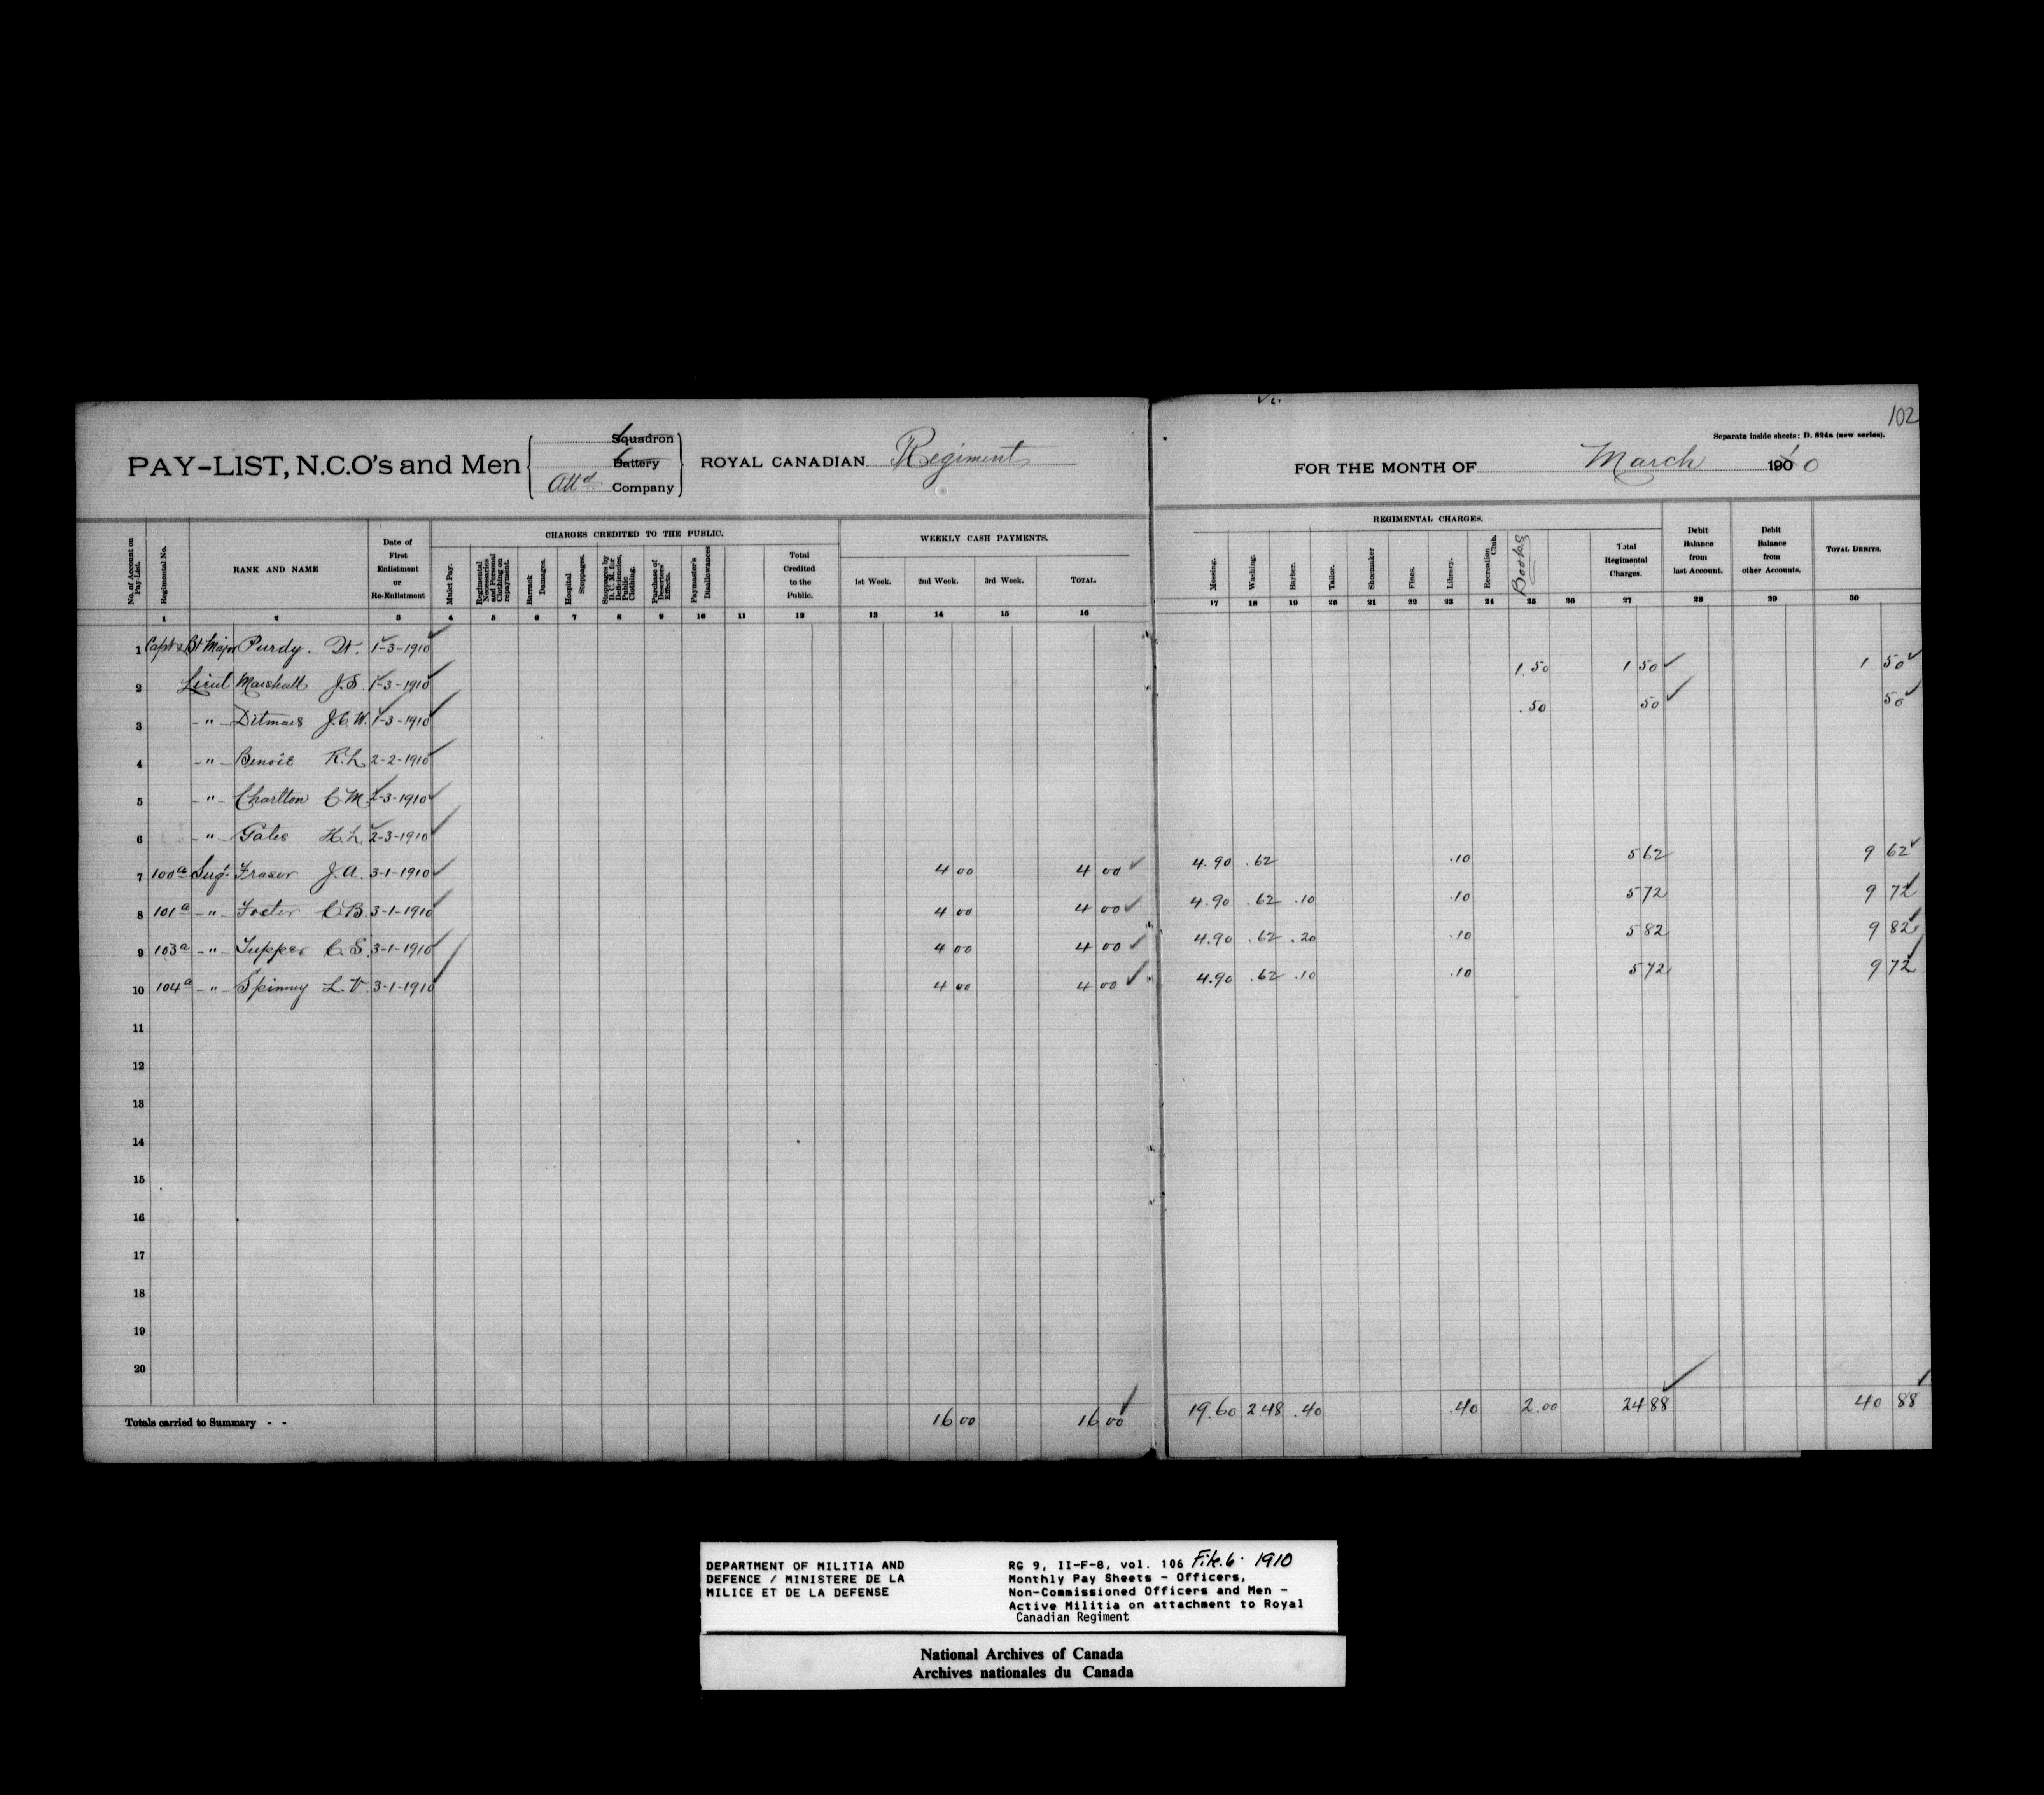 102
Separate inside sheets: D. 824a (new series).
PAY-LIST, N.C.O's and Men
Squadron
Battery
Attd Company
ROYAL CANADIAN Regiment
FOR THE MONTH OF March 1910
No. of Account on Pay-List.
Regimental No.
RANK AND NAME
Date of First Enlistment or Re-Enlistment
CHARGES CREDITED TO THE PUBLIC.
Mulct Pay.
Regimental Necessaries and Personal Clothing on repayment.
Barrack Damages.
Hospital Stoppages.
Stoppages by D. C. M. for Deficiencies, Public Clothing.
Purchase of Deserters' Effects.
Paymaster's Disallowances
Total Credited to the Public.
WEEKLY CASH PAYMENTS.
1st Week. 2nd Week. 3rd Week. TOTAL.
REGIMENTAL CHARGES.
Messing. Washing. Barber. Tailor. Shoemaker Fines. Library. Recreation Club. Books
Total Regimental Charges.
Debit Balance from last Account.
Debit Balance from other Accounts.
TOTAL DEBITS.
1 2 3 4 5 6 7 8 9 10 11 12 13 14 15 16 17 18 19 20 21 22 23 24 25 26 27 28 29 30
1 Capt & Bt Major Purdy. W. 1-3-1910
2 Lieut Marshall J.S. 1-3-1910 1.50 1 50 1 50
3 -"- Ditmars J.C.W. 1-3-1910 .50 50 50
4 -"- Benoie R.L. 2-2-1910
5 -"- Charlton C.M. 2-3-1910
6 -"- Gates H.L. 2-3-1910
7 100a Sergt Fraser J.A. 3-1-1910 4 00 4 00 4.90 .62 .10 5 62 9 62
8 101a -"- Foster C.B. 3-1-1910 4 00 4 00 4.90 .62 .10 .10 5 72 9 72
9 103a -"- Tupper C.S. 3-1-1910 4 00 4 00 4.90 .62 .20 .10 5 82 9 82
10 104a -"- Spinney L.V. 3-1-1910 4 00 4 00 4.90 .62 .10 .10 5 72 9 72
11
12
13
14
15
16
17
18
19
20
Totals carried to Summary - - 16 00 16 00 19.60 2.48 .40 .40 2.00 24 88 40 88
DEPARTMENT OF MILITIA AND
DEFENCE / MINISTERE DE LA
MILICE ET DE LA DEFENSE
RG 9, II-F-8, vol. 106 File.6. 1910
Monthly Pay Sheets - Officers,
Non-Commissioned Officers and Men -
Active Militia on attachment to Royal
Canadian Regiment
National Archives of Canada
Archives nationales du Canada